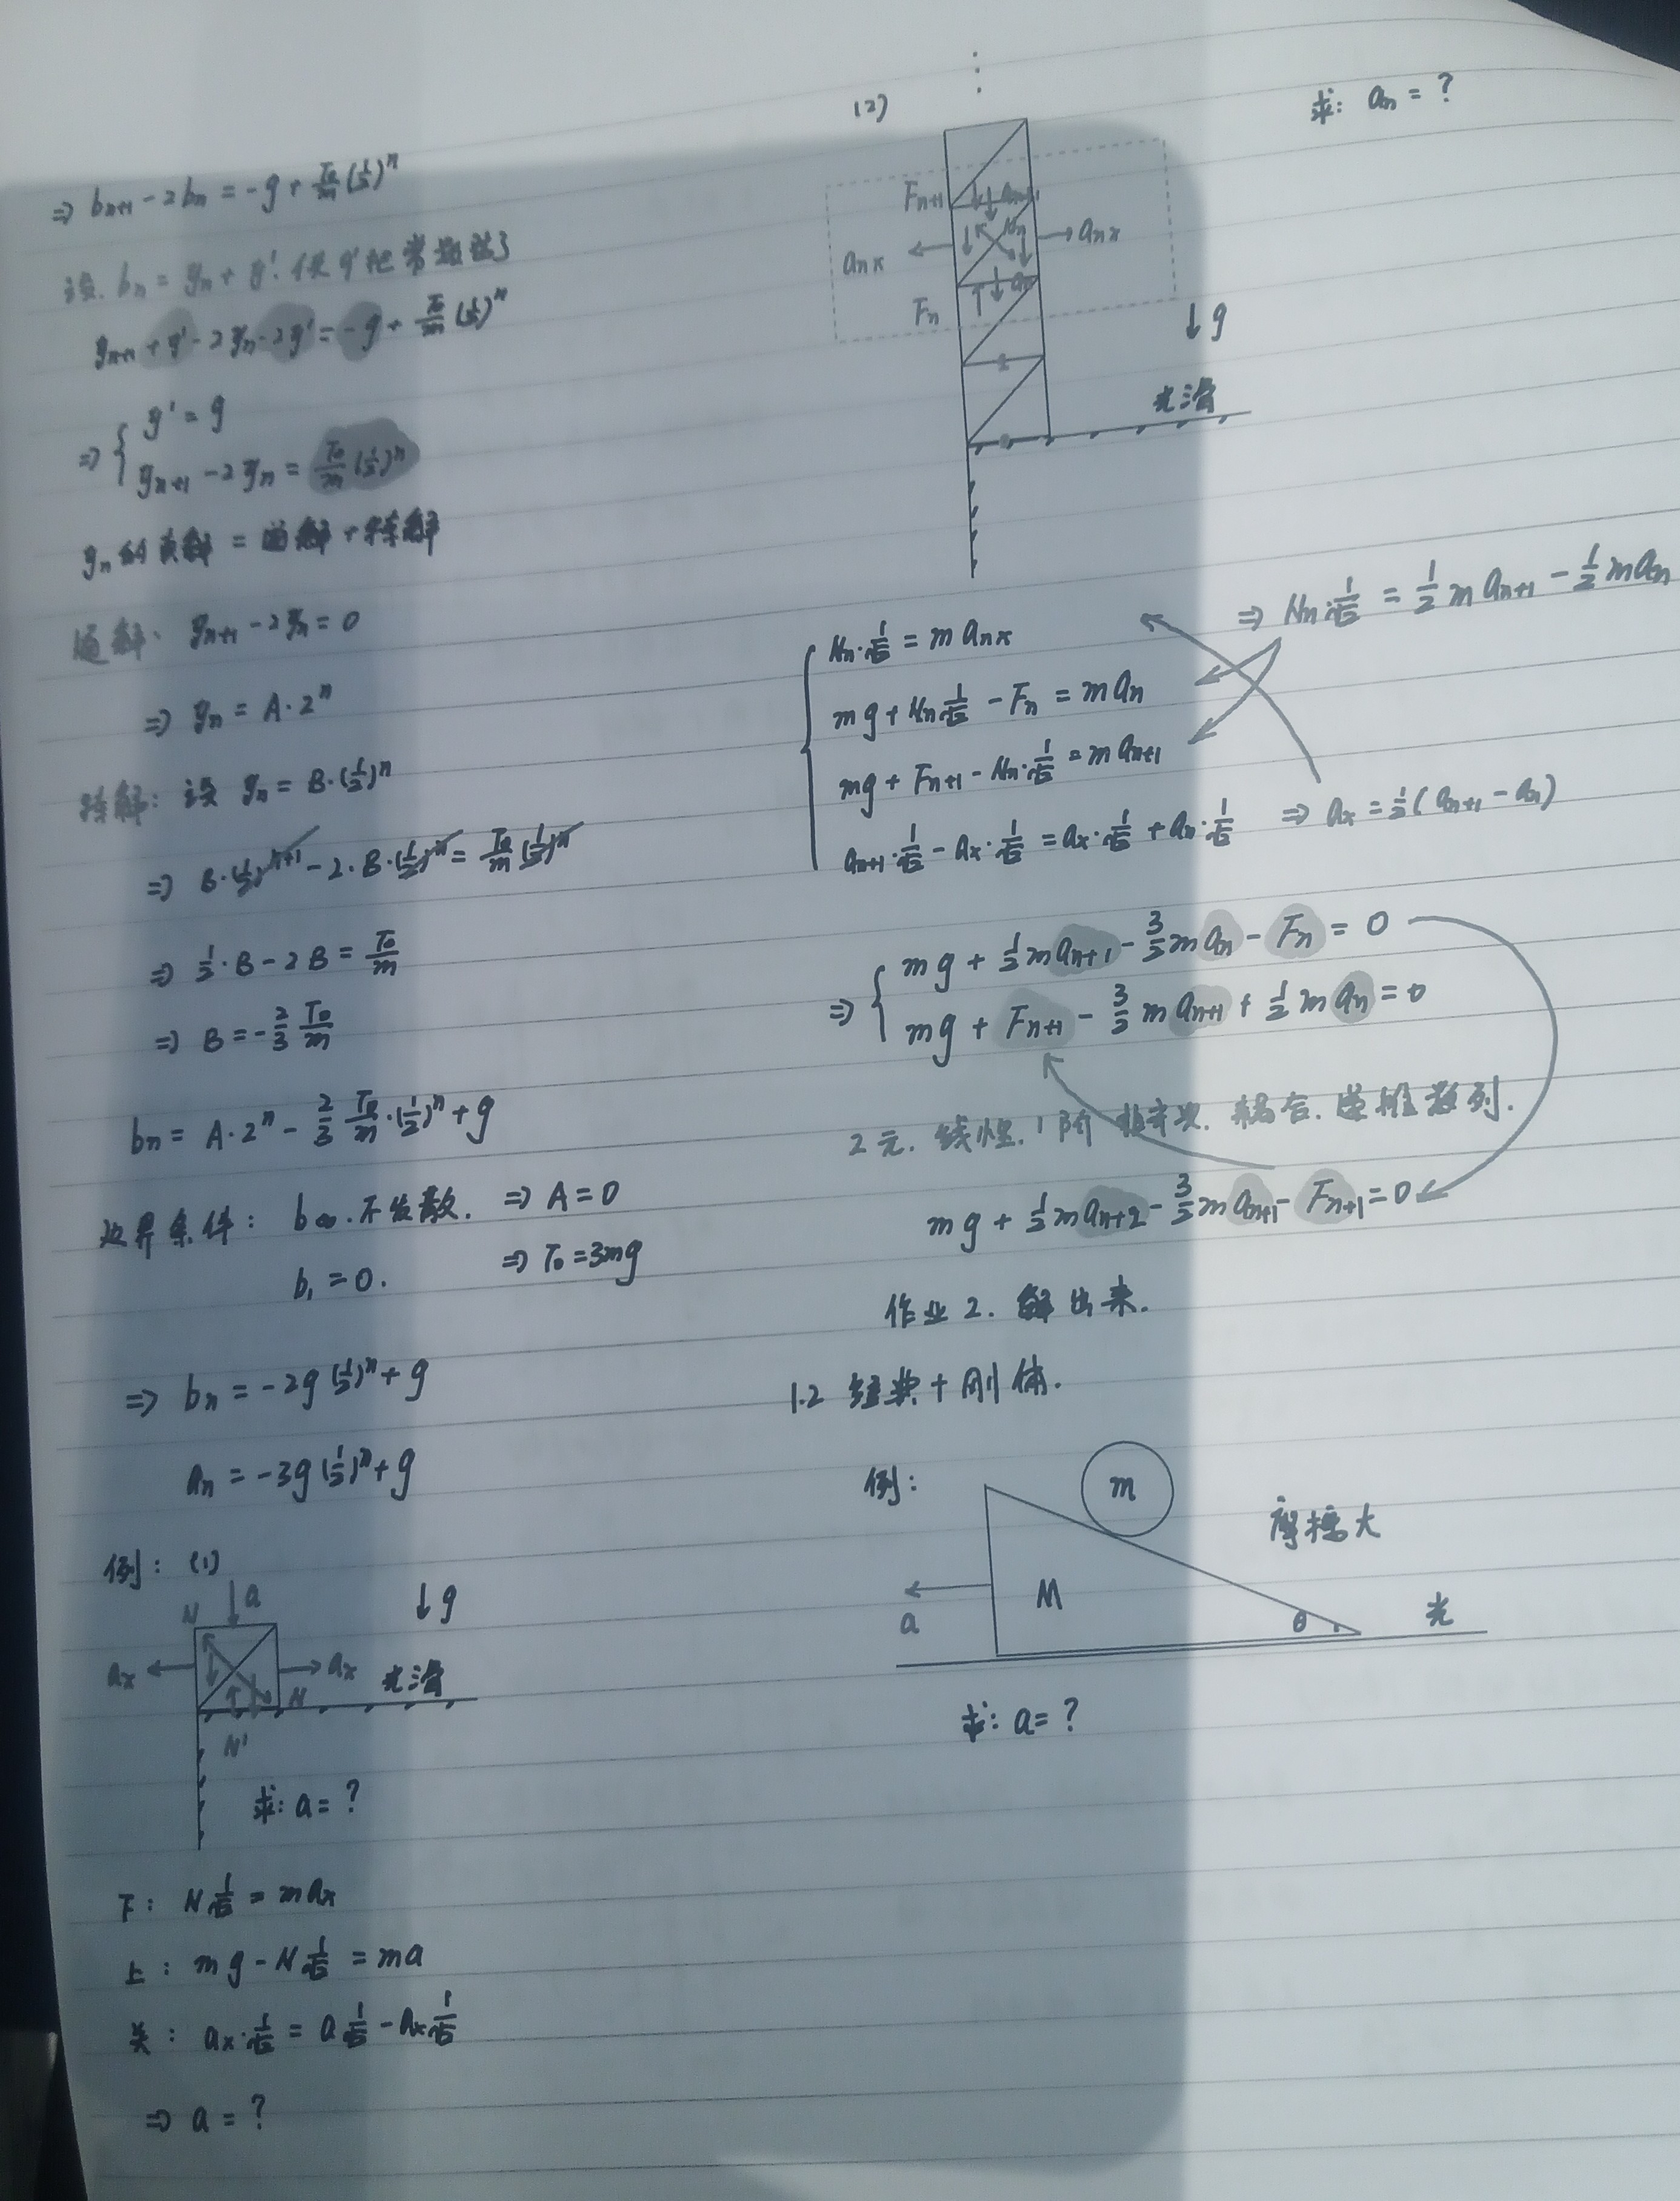 ⇒ bₙ₊₁ - 2bₙ = -g + T₀/m (1/2)ⁿ
设. bₙ = yₙ + g'. 使 g' 把常数
yₙ₊₁ + g' - 2yₙ - 2g' = -g + T₀/m (1/2)ⁿ
⇒ { g' = g
yₙ₊₁ - 2yₙ = T₀/m (1/2)ⁿ
yₙ 的 解 = 通解 + 特解
通解: yₙ₊₁ - 2yₙ = 0
⇒ yₙ = A·2ⁿ
特解: 设 yₙ = B·(1/2)ⁿ
⇒ B·(1/2)ⁿ⁺¹ - 2·B·(1/2)ⁿ = T₀/m (1/2)ⁿ
⇒ 1/2·B - 2B = T₀/m
⇒ B = -2/3 T₀/m
bₙ = A·2ⁿ - 2/3 T₀/m·(1/2)ⁿ + g
边界条件: b∞.不发散. ⇒ A = 0
b₁ = 0. ⇒ T₀ = 3mg
⇒ bₙ = -2g(1/2)ⁿ + g
aₙ = -3g(1/2)ⁿ + g
例: (1)
N
a
↓g
aₓ
aₓ
N
光滑
N'
求: a = ?
下: N 1/√2 = maₓ
上: mg - N 1/√2 = ma
关: aₓ·1/√2 = a 1/√2 - aₓ 1/√2
⇒ a = ?
(2)
求: aₙ = ?
Fₙ₊₁
aₙ₊₁
Nₙ
aₙₓ
aₙₓ
aₙ
Fₙ
↓g
光滑
Nₙ·1/√2 = m aₙₓ
⇒ Nₙ·1/√2 = 1/2 m aₙ₊₁ - 1/2 m aₙ
mg + Nₙ 1/√2 - Fₙ = m aₙ
mg + Fₙ₊₁ - Nₙ·1/√2 = m aₙ₊₁
aₙ₊₁·1/√2 - aₓ·1/√2 = aₓ·1/√2 + aₙ·1/√2 ⇒ aₓ = 1/2(aₙ₊₁ - aₙ)
⇒ { mg + 1/2 m aₙ₊₁ - 3/2 m aₙ - Fₙ = 0
mg + Fₙ₊₁ - 3/2 m aₙ₊₁ + 1/2 m aₙ = 0
2元. 线性. 1阶 耦合. 递推数列.
mg + 1/2 m aₙ₊₂ - 3/2 m aₙ₊₁ - Fₙ₊₁ = 0
作业2. 解出来.
1.2 经典 + 刚体.
例:
m
摩擦大
M
a
θ
光
求: a = ?